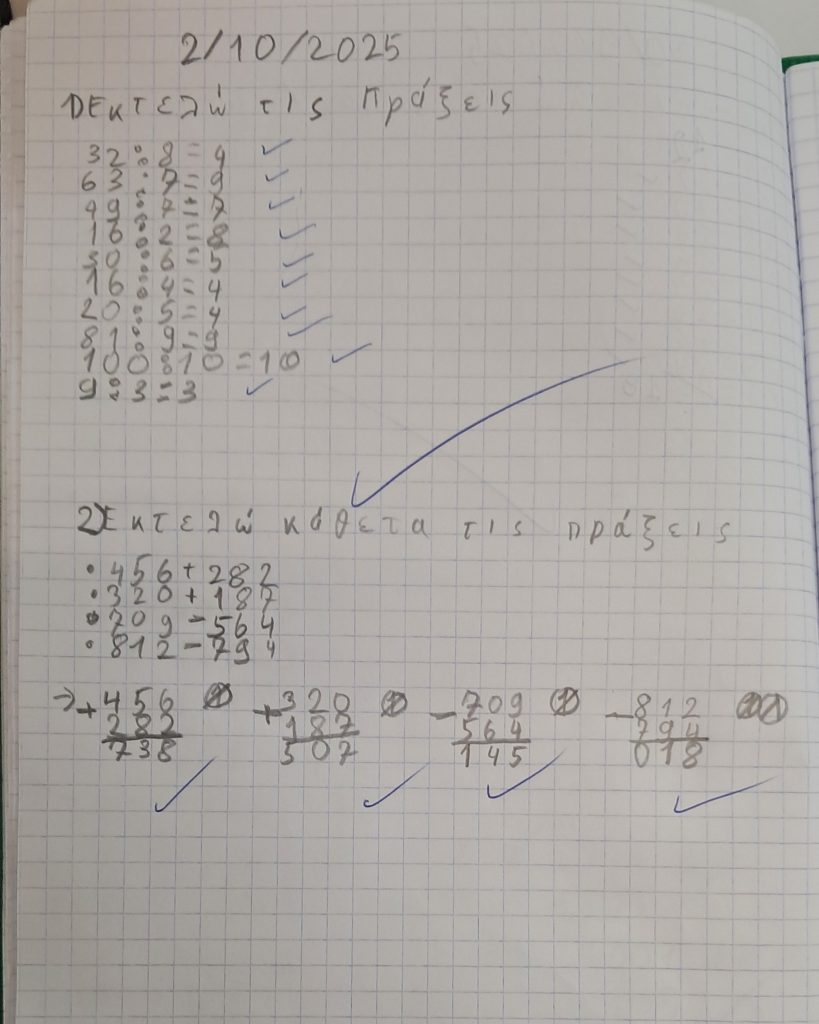 2/10/2025
1) Εκτελώ τις πράξεις
32:8=4
63:7=9
49:7=7
16:2=8
30:6=5
16:4=4
20:5=4
81:9=9
100:10=10
9:3=3
2) Εκτελώ κάθετα τις πράξεις
• 456+282
• 320+187
• 709-564
• 812-794
→ +456 1 +320 1 -709 1 -812 11
282 187 564 794
738 507 145 018